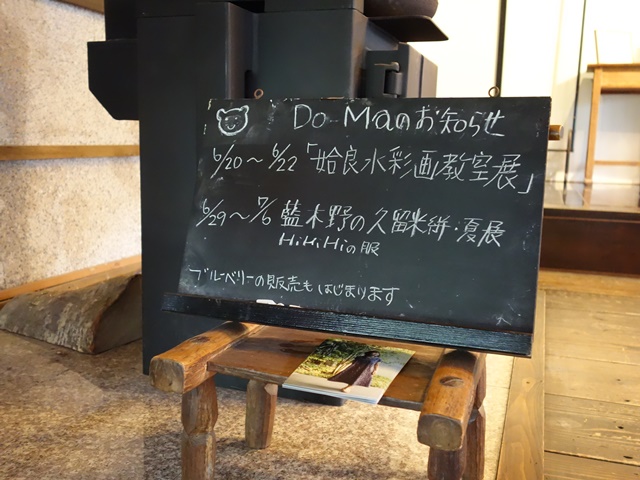 Do Maのお知らせ
6/20～6/22「姶良水彩画教室展」
6/29～7/6 藍木野の久留米絣・夏展
HiHiHiの服
ブルーベリーの販売もはじまります